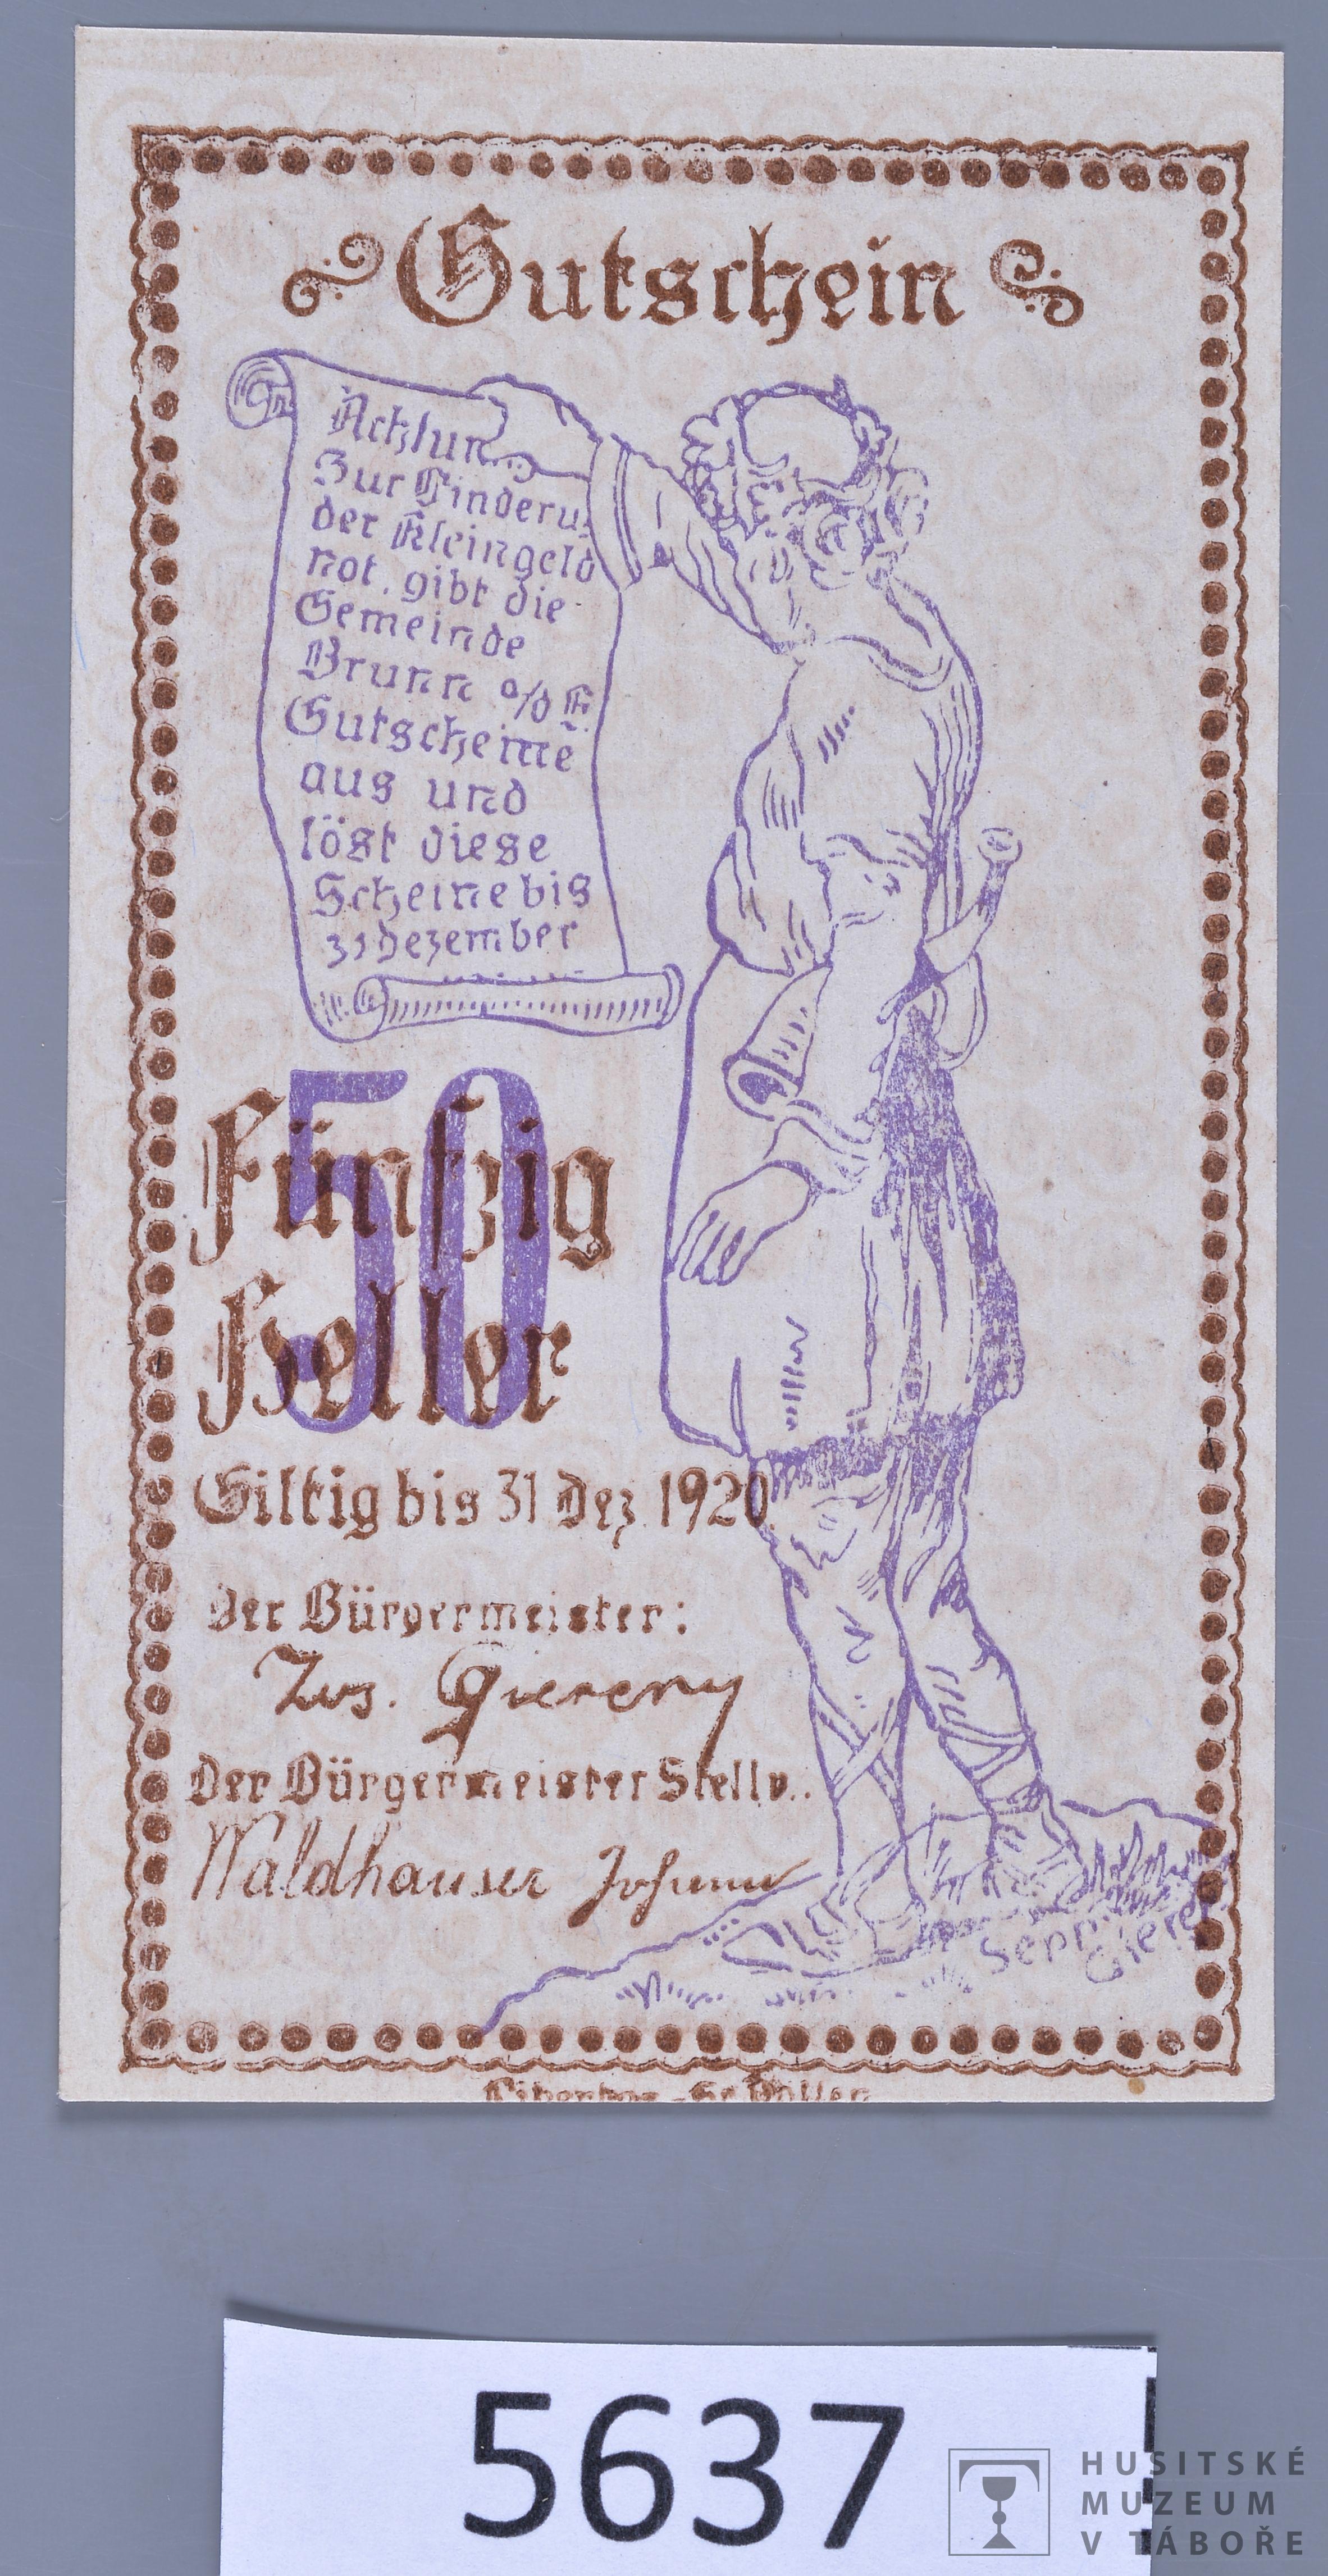 Gutschein
Achtung
Zur Linderu
der Kleingeld
not. gibt die
Gemeinde
Brunn a/d E.
Gutscheine
aus und
löst diese
Scheine bis
31 Dezember
50
Fünfzig
Heller
Giltig bis 31 Dez 1920
Der Bürgermeister:
Der Bürgermeister Stellv.:
Waldhauser Johann
Sepp
5637
HUSITSKÉ
MUZEUM
V TÁBOŘE